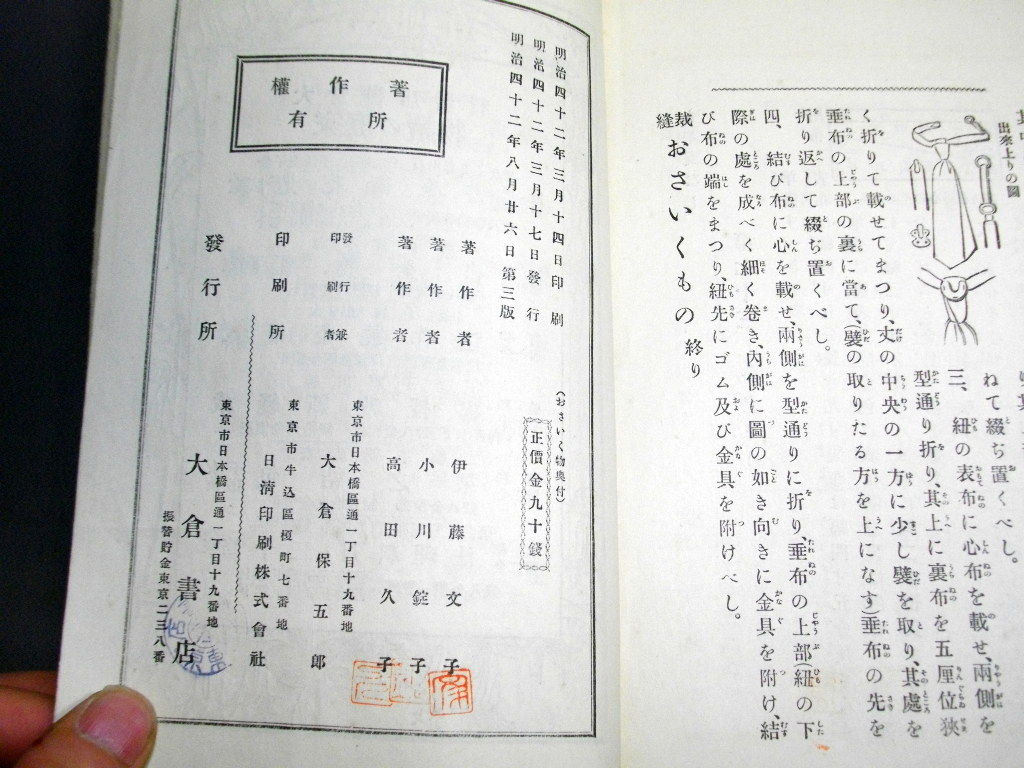 出來上りの圖
ねて綴ぢ置くべし。
三、紐の表布に心布を載せ、兩側を
型通り折り、其上に裏布を五厘位狹
く折りて載せてまつり、丈の中央の一方に少し襞を取り、其處を
垂布の上部の裏に當て、(襞の取りたる方を上になす)垂布の先を
折り返して綴ぢ置くべし。
四、結び布に心を載せ、兩側を型通りに折り、垂布の上部(紐の下
際の處を成べく細く卷き、內側に圖の如き向きに金具を附け、結
び布の端をまつり、紐先にゴム及び金具を附けべし。
裁縫おさいくもの 終り
明治四十二年三月十四日印刷
明治四十二年三月十七日發行
明治四十二年八月廿六日第三版
(おさいく物奧付)
正價金九十錢
著作權所有
著作者 伊藤文子
著作者 小川錠子
著作者 高田久子
東京市日本橋區通一丁目十九番地
發行兼印刷者 大倉保五郎
東京市牛込區榎町七番地
印刷所 日淸印刷株式會社
東京市日本橋區通一丁目十九番地
發行所 大倉書店
振替貯金東京二三八番